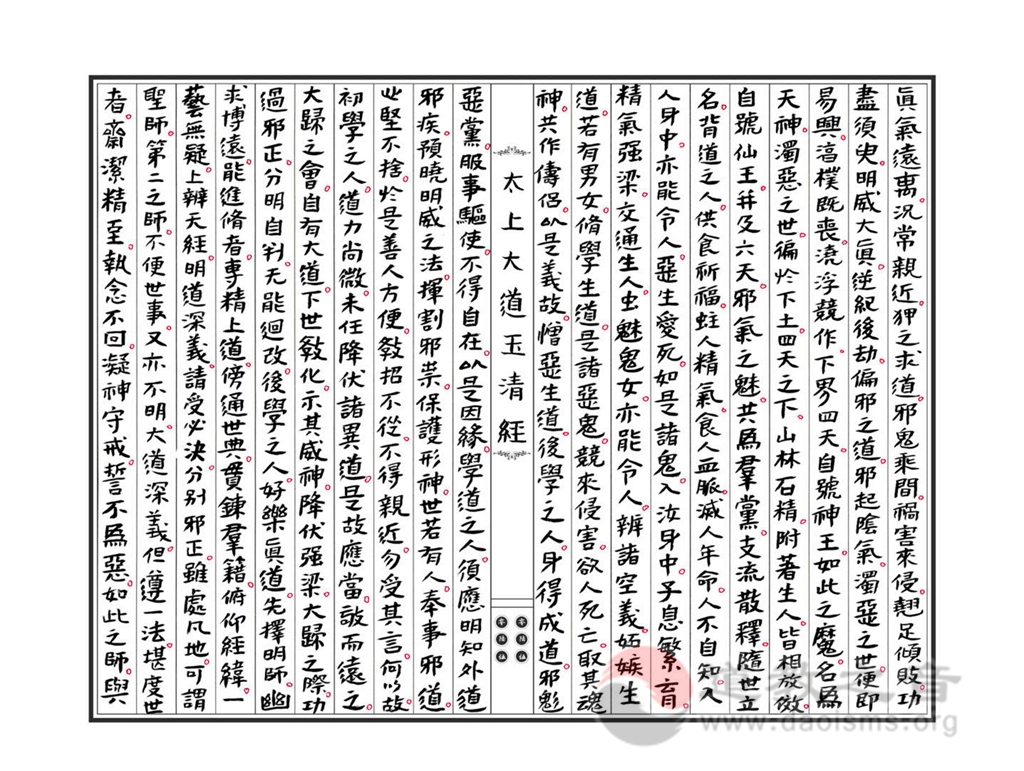 眞氣遠离况常親近狎之求道邪鬼乘間禍害來侵翹足傾敗功
盡須臾明威大眞逆紀後劫偏邪之道邪起陰氣濁惡之世便即
易興高樸既喪澆浮競作下界四天自號神王如此之魔名爲
天神濁惡之世徧於下土四天之下山林石精附著生人皆相放儌
自號仙王并及六天邪氣之魅共爲羣黨支流散釋隨世立
名背道之人供食祈福蛀人精氣食人血脈滅人年命人不自知入
人身中亦能令人惡生愛死如是諸鬼入汝身中子息繁育
精氣强梁交通生人虫魅鬼女亦能令人辨諸空義妬嫉生
道若有男女脩學生道是諸惡鬼競來侵害欲人死亡取其魂
神共作儔侣以是義故憎惡生道後學之人身得成道邪鬽
太上大道玉清經
惡黨服事驅使不得自在以是因緣學道之人須應明知外道
邪疾預曉明威之法揮割邪祟保護形神世若有人奉事邪道
此堅不捨於是善人方便教招不從不得親近勿受其言何以故
初學之人道力尚微未任降伏諸異道是故應當敬而遠之
大歸之會自有大道下世教化示其威神降伏强梁大歸之際功
過邪正分明自判无能迴改後學之人好樂眞道先擇明師幽
求博遠能進脩者專精上道傍通世典貫鍊羣籍俯仰經緯一
藝無疑上辨天經明道深義請受必决分别邪正雖處凡地可謂
聖師第二之師不便世事又亦不明大道深義但遵一法堪度世
者齋潔精至執念不回凝神守戒誓不爲惡如此之師與
道教之音
www.daoisms.org